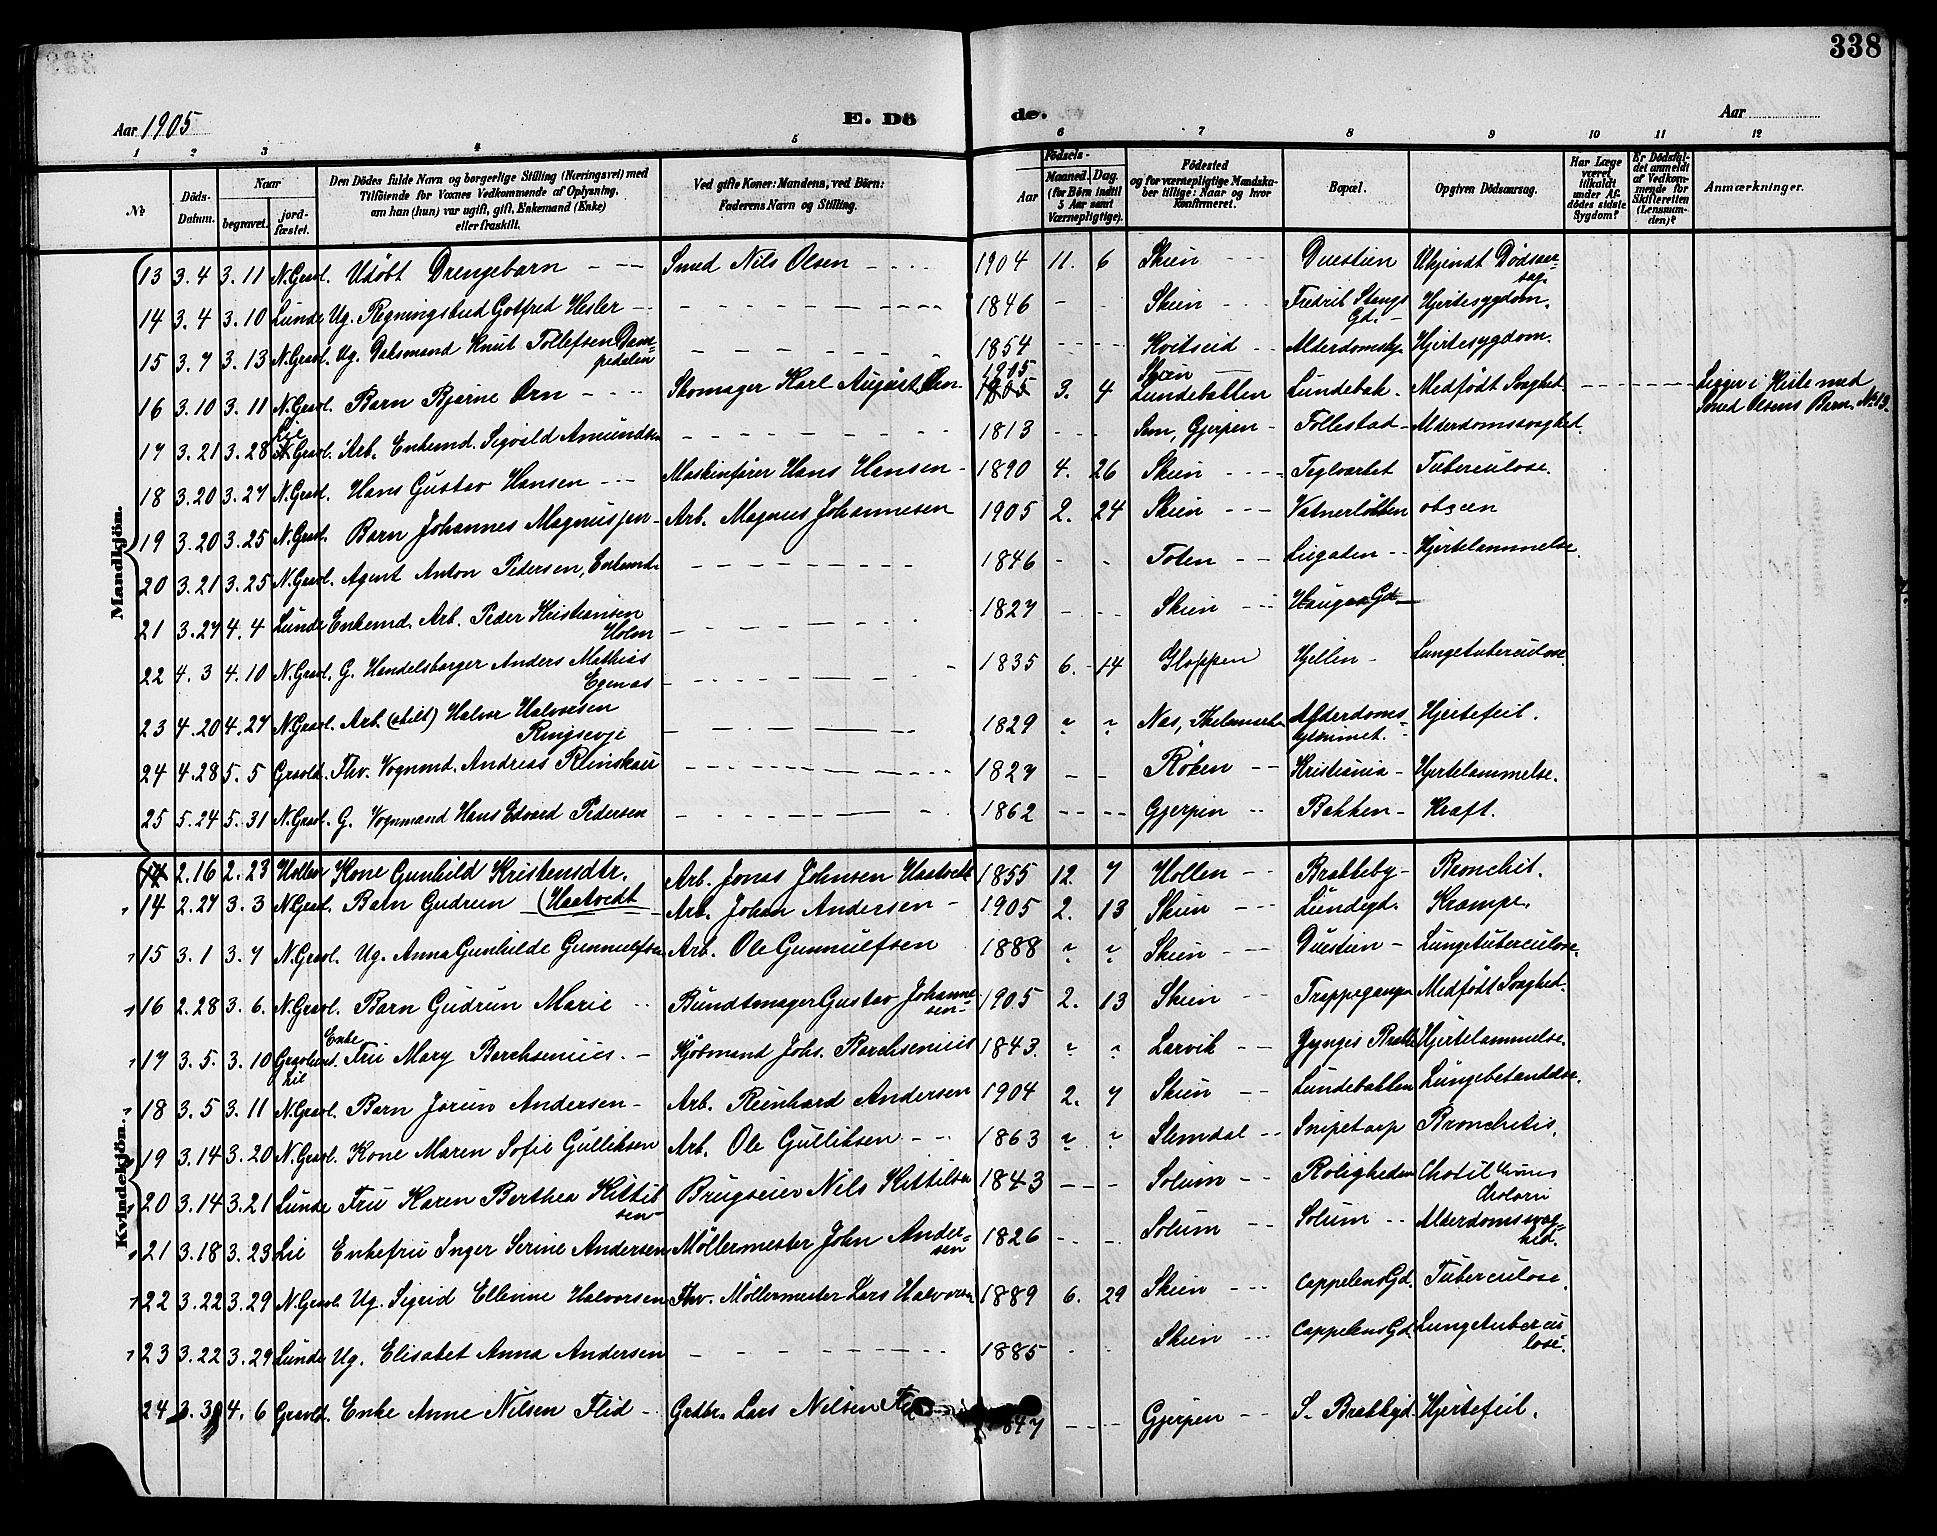 338
Aar 1905
E. Dö
de.
Aar
1 2 3 4 5 6 7 8 9 10 11 12
No
Döds-Datum.
Naar
begravet.
jord-fæstet.
Den Dödes fulde Navn og borgerlige Stilling (Næringsvei) med
Tilföiende for Voxnes Vedkommende af Oplysning,
om han (hun) var ugift, gift, Enkemand (Enke)
eller fraskilt.
Ved gifte Koner: Mandens, ved Börn:
Faderens Navn og Stilling.
Födsels-
Aar
Maaned. Dag.
(for Börn indtil
5 Aar samt
Værnepligtige).
Födested
og for værnepligtige Mandska-
ber tillige: Naar og hvor
konfirmeret.
Bopæl.
Opgiven Dödsaarsag.
Har Læge
været
tilkaldt
under Af-
dödes sidste
Sygdom?
Er Dödsfal-
det anmeldt
af Vedkom-
mende for
Skifteretten
(Lensman-
den)?
Anmærkninger.
Mandkjön.
13 3.4 3.11 N. Gravl. Udöbt Drengebarn Smed Nils Olsen 1904 11. 6 Skien Duestien Ukjendt Dödsaar-
sag.
14 3.4 3.10 Lunde Ug. Regningsbud Gotfred Hesler 1846 Skien Fredrik Stangs Gd. Hjertesygdom.
15 3.7 3.13 N. Gravl. Ug. Dalsmand Knut Tollefsen 1854 Kvitseid Alderdomshj. Hjertesygdom.
16 3.10 3.11 N. Gravl. Barn Bjarne Örn Skomager Karl August Örn 1905 3. 4 Skien Lundebakken Lundebak. Medfödt Svaghed Ligger i Kiste med
Smed Olsens Barn. No 13.
17 3.21 3.28 Lie Gravl. Arb. Enkemd. Sigvald Amundsen 1813 Sem, Gjerpen Follestad Alderdomssvaghed.
18 3.20 3.27 N. Gravl. Hans Gustav Hansen Maskinförer Hans Hansen 1890 4. 26 Skien Teglverket Tuberculose.
19 3.20 3.25 N. Gravl. Barn Johannes Magnussen Arb. Magnus Johannesen 1905 2. 24 Skien
20 3.21 3.25 N. Gravl. Agent Anton Pedersen, Enkemd. 1846 Toten Liegaten Hjertelammelse.
21 3.27 4.4 Lunde Enkemd. Arb. Peder Kristiansen
Holm 1827 Skien
22 4.3 4.10 N. Gravl. G. Handelsborger Anders Mathias
Egenæs 1835 6. 14 Gloppen Hjellen Lungetuberculose.
23 4.20 4.27 N. Gravl. Arb. Halvor Halvorsen
Ringsevje 1829 " " Næs, Alderdoms-
hjemmet. Hjertefeil.
24 4.28 5.5 Gravl. Fhv. Vognmd. Andreas Reinskau 1827 Röken Kristiania Hjertelammelse.
25 5.24 5.31 N. Gravl. G. Vognmand Hans Edvard Pedersen 1862 Gjerpen Bakken Kræft.
Kvindekjön.
14 2.16 2.23 Hollen Kone Gunhild Kristensdtr.
(Haatvedt Arb. Jonas Johnsen Haatvedt 1855 12. 7 Hollen Bratteby Bronchit.
14 2.27 3.3 N. Gravl. Barn Gudrun Arb. Johan Andersen 1905 2. 13 Skien Lundegd. Krampe.
15 3.1 3.7 N. Gravl. Ug. Anna Gunhilde Gunnulfsen Arb. Ole Gunnulfsen 1888 " " Skien Duestien Lungetuberculose.
16 2.28 3.6. N. Gravl. Barn Gudrun Marie Bundtmager Gustav Johanne-
sen 1905 2. 13 Skien Trappegangen Medfödt Svaghed.
17 3.5. 3.10 Enke Fru Mary Borchsenius Kjöbmand Johs. Borchsenius 1843. " " Larvik Hjertelammelse.
18 3.5 3.11 N. Gravl. Barn Jorun Andersen Arb. Reinhard Andersen 1904 2. 7 Skien Lundebakken Lungebetændelse.
19 3.14 3.20 N. Gravl. Kone Maren Sofie Gulliksen Arb. Ole Gulliksen 1863 " " Slemdal Snipetorp Bronchitis.
20 3.14 3.21 Lunde Fru Karen Berthea Kittil-
sen Brugseier Nils Kittilsen 1843 Solum Roligheden
21 3.18 3.23 Lie Enkefru Inger Serine Andersen Möllermester John Ander-
sen 1826 Solum Solum Alderdomssvag-
hed.
22 3.22 3.29 N. Gravl. Ug. Sigrid Ellevine Halvorsen Fhv. Möllermester Lars Halvorsen 1889 6. 29 Skien Cappelens Gd. Tuberculose.
23 3.22 3.29 Lunde Ug. Elisabet Anna Andersen 1885 Skien Cappelens Gd. Lungetubercu-
lose.
24 4.6 Gravl. Enke Anne Nilsen Flid Grdbr. Lars Nilsen Gjerpen S. Brekkegd. Hjertefeil.